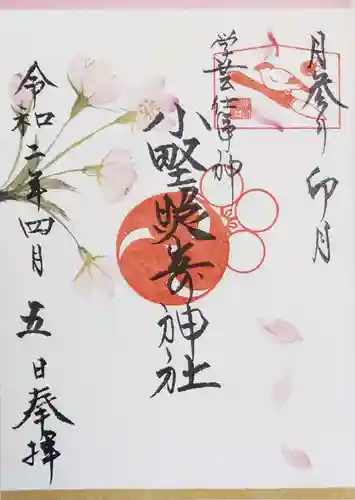 月参り 卯月
学芸仕事神
小野照崎神社
令和二年四月
五日奉拝